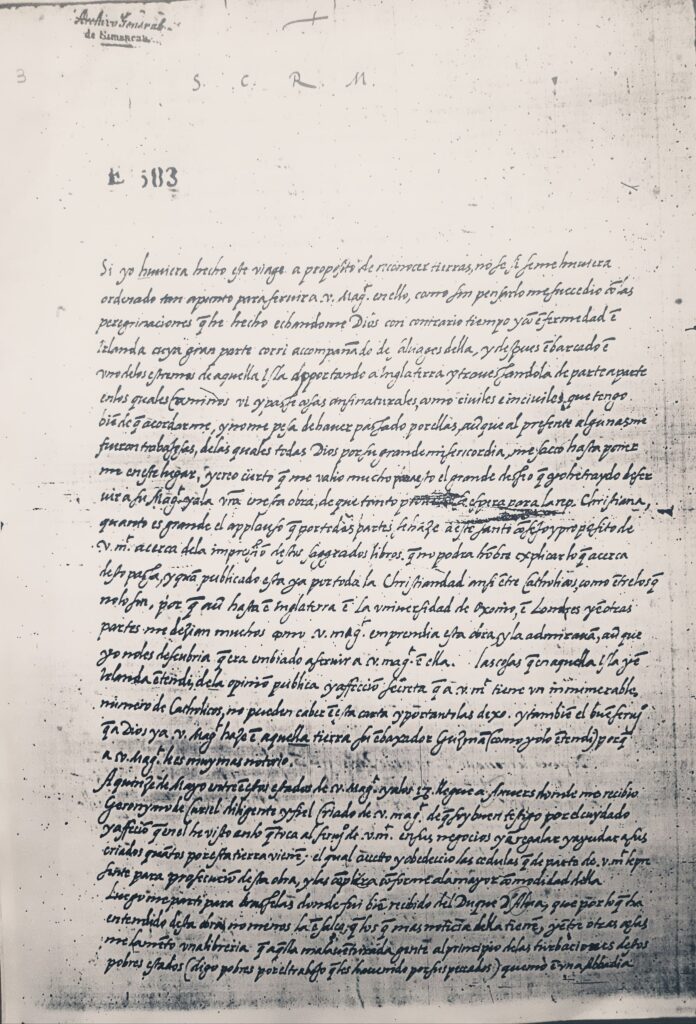 Archivo General
de Simancas
3
S. C. R. M.
E 583
Si yo huuiera hecho este viage a proposito de reconocer tierras, no se si se me huuiera
ordenado tan apunto para seruir a .v. Mag. en ello, como sin pensarlo me succedio cō las
peregrinaciones q̄ he hecho echandome Dios con contrario tiempo y cō ēfermedad ē
Irlanda cuya gran parte corri accompañado de saluages della, y despues ēbarcado ē
vno de los estremos de aquella Isla aportando a Inglaterra y trauessandola de parte a parte
en los quales caminos vi y passe cosas ansi naturales, como ciuiles e inciuiles, que tengo
biē de q̄ acordarme, y no me pesa de hauer passado por ellas, aūque al presente algunas me
fueron trabajosas, de las quales todas Dios por su grande misericordia, me saco hasta poner
me en este lugar, y creo cierto q̄ me valio mucho para esto el grande desseo q̄ yo he traydo de ser
uir a su Mag. y a la vr̄a en esta obra, de que tanto se espera para la rep. Christiana,
quanto es grande el applauso q̄ por todas partes se haze a este santo cōsejo y proposito de
.v. m. acerca de la impressiō destos sagrados libros. q̄ no podra hōbre explicar lo q̄ acerca
desto passa, y quā publicado esta ya por toda la Christiandad ansi ētre Catholicos, como ētre los q̄
no lo son, por q̄ aū hasta ē Inglaterra ē la vniuersidad de Oxonio, ē Londres y ē otras
partes me dezian muchos como .v. mag. emprendia esta obra, y la admirauā, aū que
yo no les descubria q̄ era embiado a seruir a .v. mag. ē ella. las cosas q̄ en aquella Isla y ē
Irlanda ētendi, de la opiniō publica y affeciō secreta q̄ a .v. m. tiene vn innumerable,
numero de Catholicos, no pueden caber ē esta carta y por tanto las dexo. y tambiē el buē seruj
q̄ a Dios y a .v. Mag. haze ē aquella tierra su ēbaxador Guzmā (como yo lo ētendi) porq̄
a .v. Mag. le es muy mas notorio.
A quinze de Mayo entre ē estos estados de .v. Mag. y a los 17. llegue a Anuers donde me recibio
Geronymo de Curiel diligente y fiel criado de .v. mag. de q̄ soy buen testigo por el cuydado
y affeciō q̄ en el he visto en lo q̄ toca al seruj. de .v. m. en sus negocios y ē regalar y ayudar a sus
criados quātos por esta tierra vienē. el qual acceto y obedecio las cedulas q̄ de parte de .v. m. le pre
sente para prosecuciō desta obra, y las cōplira cōforme a la mayor comodidad della
Luego me parti para brusselas donde fui biē recibido del Duque Dalua, que por lo q̄ ha
entendido desta obra, no menos la ensalça, q̄ los q̄ mas noticia della tienē, y ētre otras cosas
me lamēto vna libreria q̄ aq̄lla malauenturada gente al principio de las turbaciones destos
pobres estados (digo pobres por el trabajo q̄ les ha venido por sus peccados) quemo ē vna Abbadia